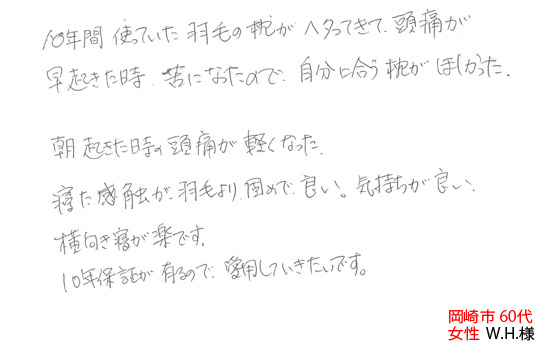 10年間使っていた羽毛の枕がヘタってきて、頭痛が
早起きた時、苦になったので、自分に合う枕がほしかった。
朝起きた時の頭痛が軽くなった。
寝た感触が、羽毛より固めで良い。気持ちが良い。
横向き寝が楽です。
10年保証が有るので、愛用していきたいです。
岡崎市 60代
女性 W.H.様